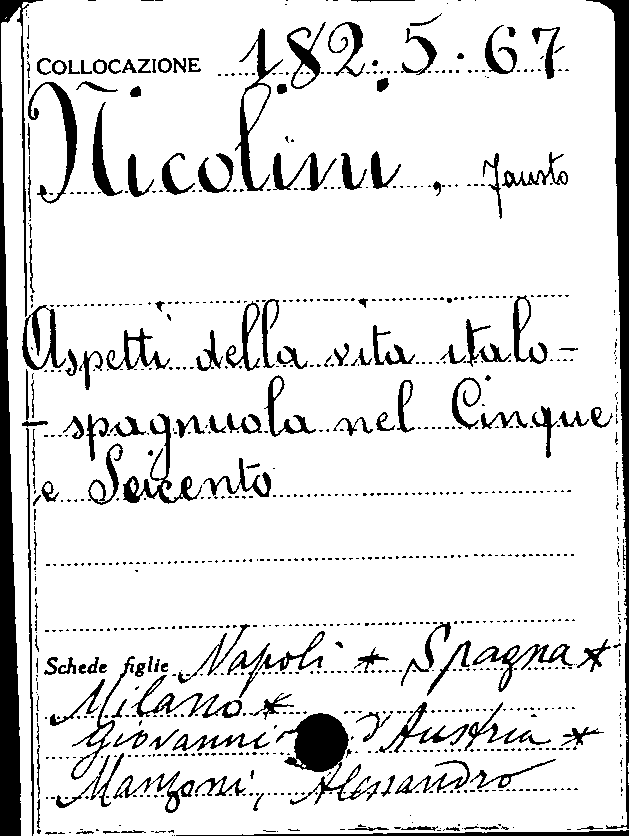 COLLOCAZIONE 182.5.67
Nicolini, Fausto
Aspetti della vita italo-
- spagnuola nel Cinque
e Seicento
Schede figlie Napoli * Spagna *
Milano *
Giovanni d'Austria *
Manzoni, Alessandro